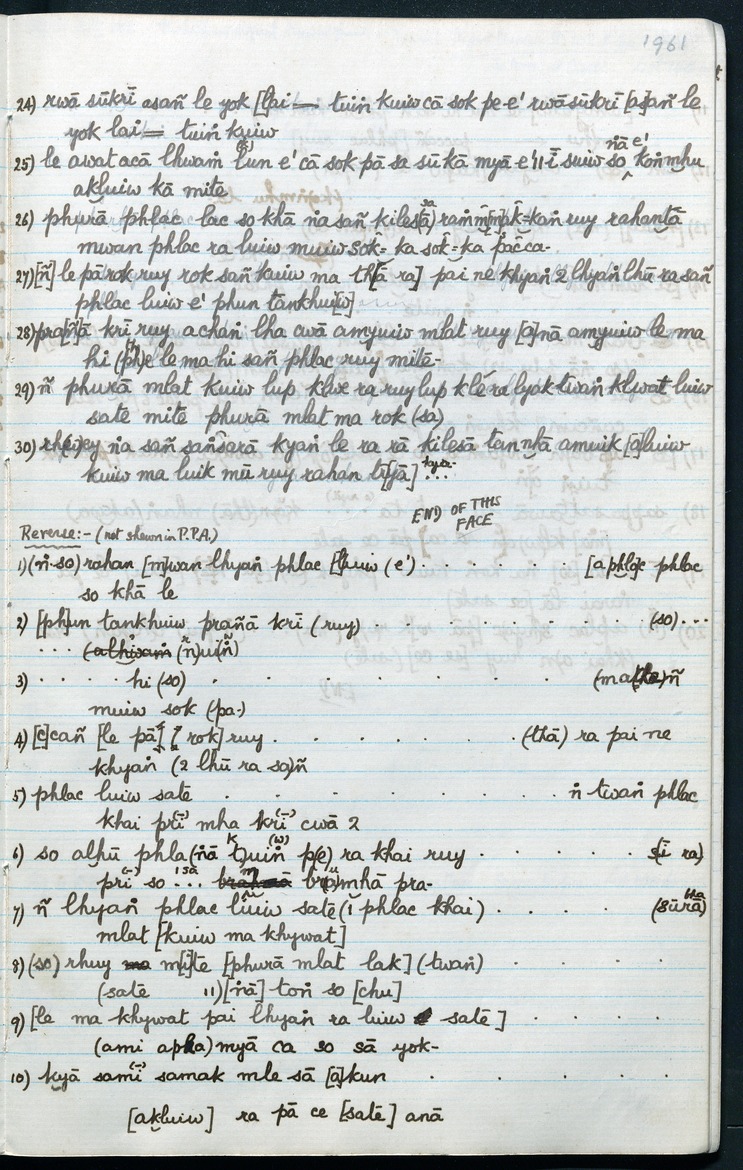 1961
24) rwā sūkrī asañ le yok [lai = tuiṅ kuiw cā sok pe-e' rwāsūkrī [a]sañ le
yok lai = tuiṅ kuiw
25) le awat acā lhwaṁ lun e' cā sok pā sa sū kā myā e' ॥ ī suiw so nā e' koṅmhu
akluiw kā mitē
26) phurā phlac lac so khā ṅa sañ kilesā raṁ kaṅ ruy rahantā
mwan phlac ra luiw muiw sok- ka sok- ka pacca-
27) [ñ] le pā rok ruy rok sañ kuiw ma th[ā ra] pai ne khyaṅ 2 lhyaṅ lhū ra sañ
phlac luiw e' phun tankhui[w]
28) pra[ñ]ā krī ruy achaṅ lha cwā amyuiw mlat ruy [a]nā amyuiw le ma
hi (ph)e le ma hi sañ phlac ruy mitē-
29) ñ phurā mlat kuiw lup klwe ra ruy lup klē ra lyak twaṅ klwat luiw
satē mitē phurā mlat ma rok (sa)
30) rhuy ṅa sañ saṅsarā kyaṅ le ra rā kilesā tannhā amuik [a]luiw
kuiw ma luik mū ruy rahan b[yā] ...
END OF THIS
FACE
Reverse:- (not shewn in P.P.A.)
1) (ṅ-so) rahan [m]wan lhyaṅ phlac [luiw (e') . . . . . [aphlo]e phlac
so khā le
2) [ph]un tankhuiw prañā krī (ruy) . . . . . (so) ...
... (ñ)ui(ñ)
3) . . . . hi (so) . . . . . (ma)ñ
muiw sok (pa-)
4) [c]cañ [le pā] [rok] ruy . . . . . (thā) ra pai ne
khyaṅ (2 lhū ra so)ñ
5) phlac luiw satē . . . . . ṅ twaṅ phlac
khai prī mha krī cwā 2
6) so alhū phla(ṅā t)uiṅ p(e) ra khai ruy . . . . . s(i ra)
prī so ... mhā pra-
7) ñ lhyaṅ phlac luiw satē (ī phlac khai) . . . . . (sūrā) bha
mlat [kuiw ma khywat]
8) (so) rhuy m[i]te [phurā mlat lak] (twaṅ)
(satē ॥) [ṅā] toṅ so [chu]
9) [le ma khywat pai lhyaṅ ra luiw satē] . . . .
(ami apha) myā ca so sā yok-
10) kyā samī samak mle sā [a]kun . . . . .
[akluiw] ra pā ce [satē] anā